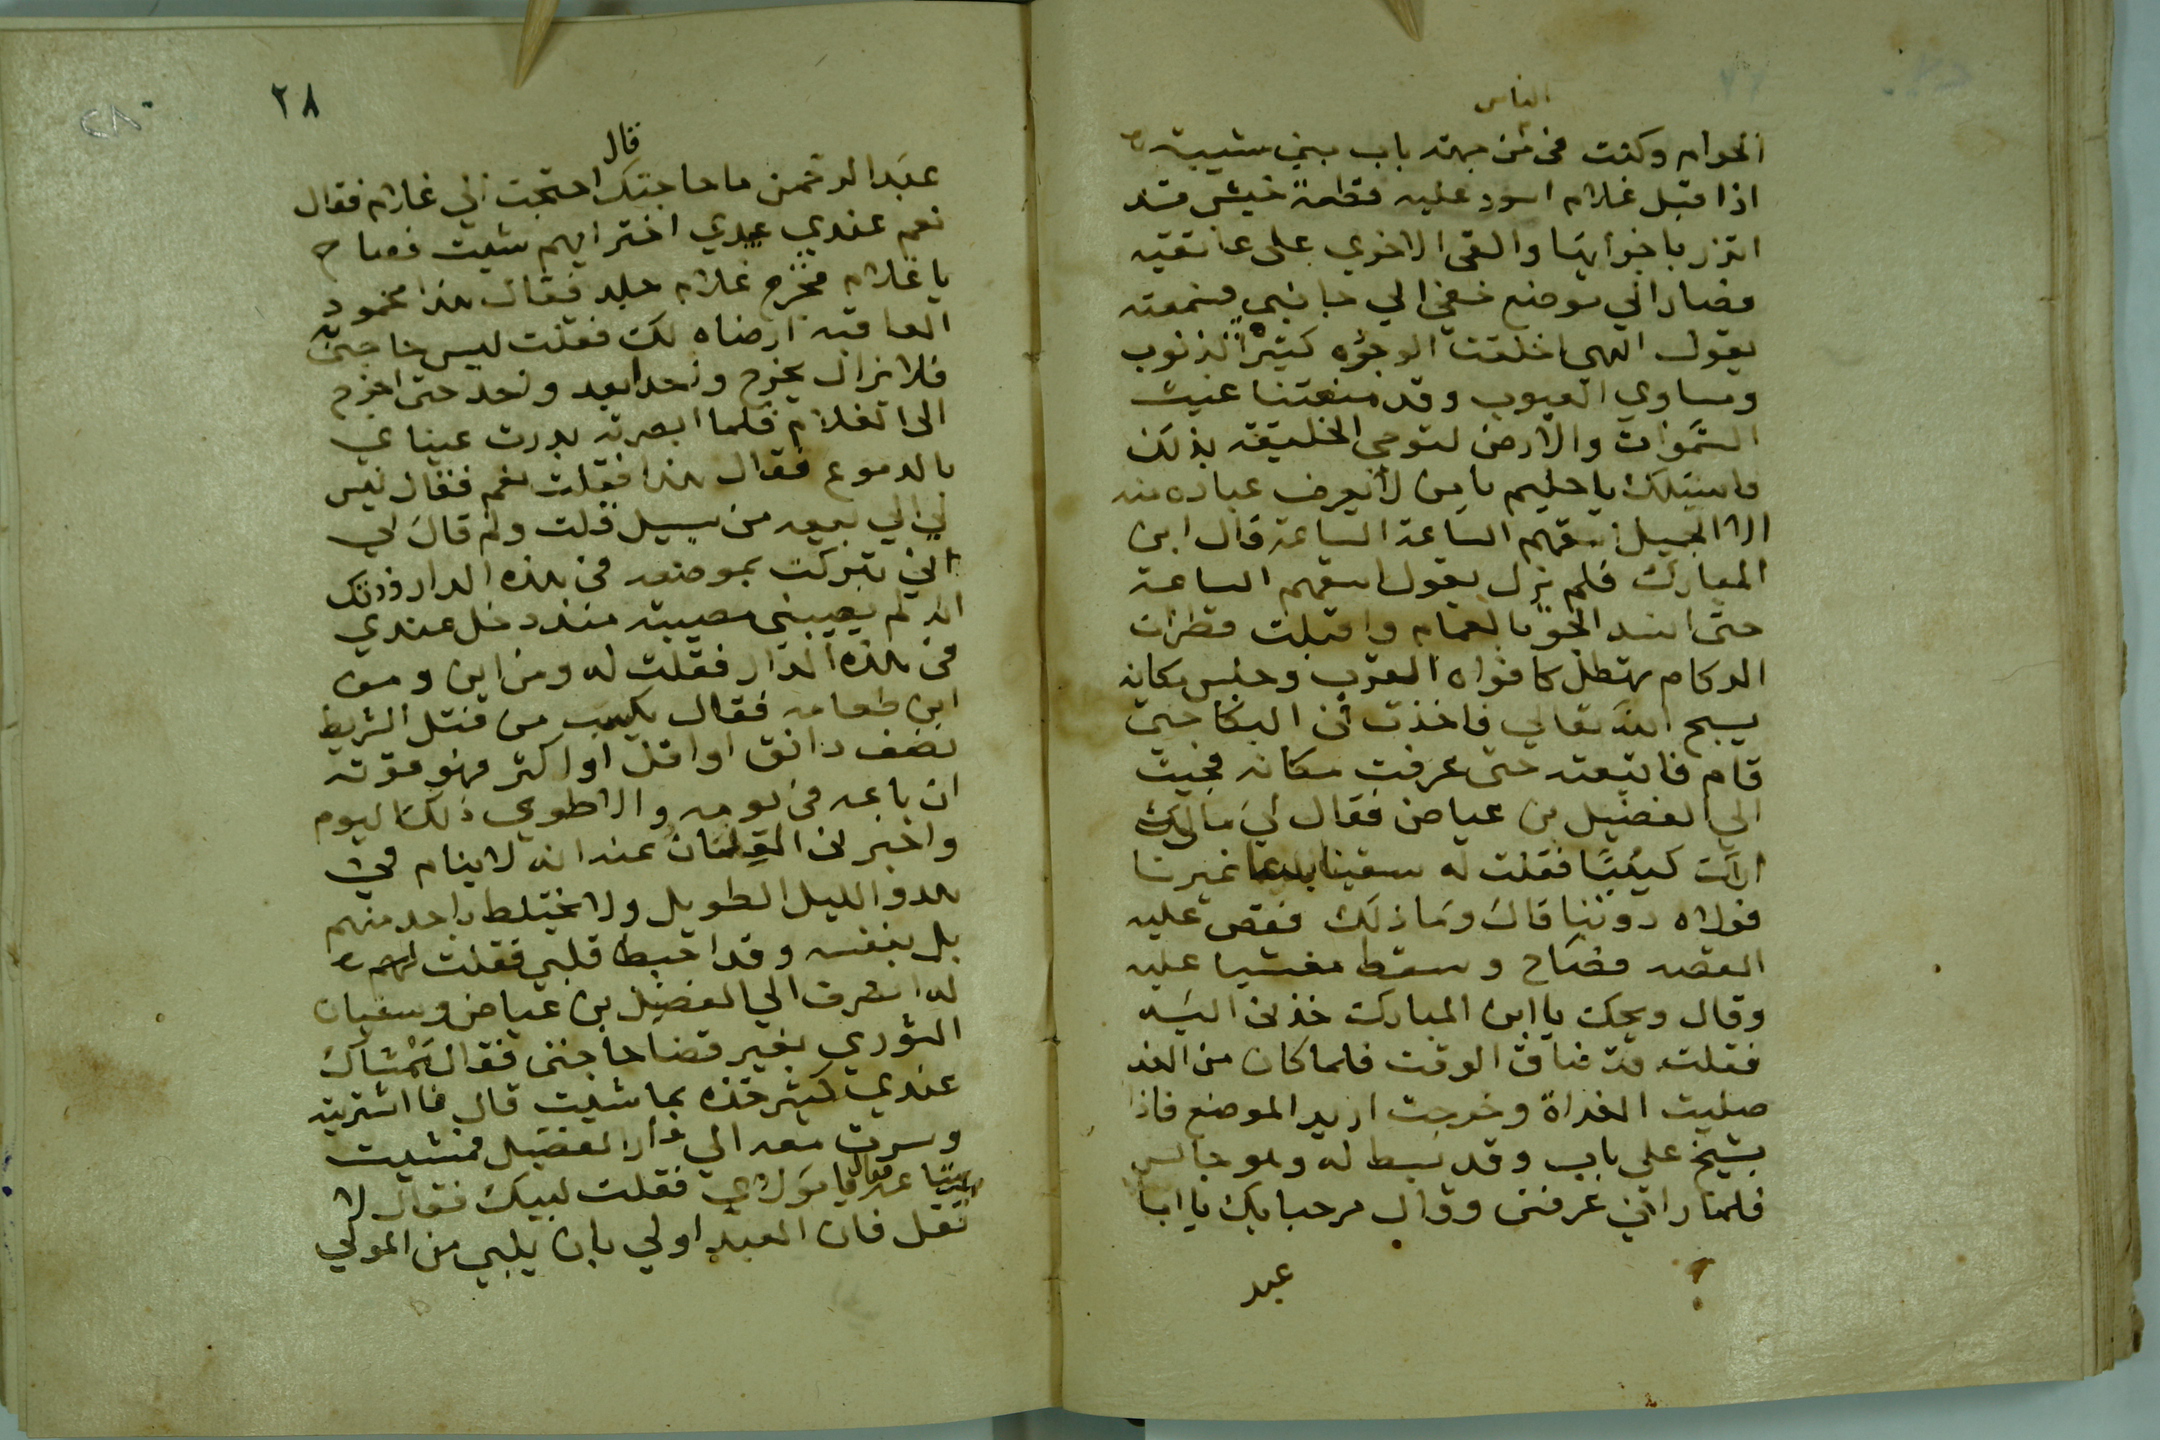 الناس
الحرام وكنت فى من جهة باب بني شيبة
اذا قبل غلام اسود عليه قطعة خيش قد
اتزر باحداهما والقى الاخري على عاتقيه
فصار الي موضع خفي الي جانبي فسمعته
يقول الهى اخلقت الوجوه كثرة الذنوب
ومساوي العيوب وقد منعتنا غيث
السموات والارض لتودي الخليقة بذلك
فاسئلك يا حليم يا من لا يعرف عباده منه
الا الجميل اسقهم الساعة الساعة قال ابن
المبارك فلم يزل يقول اسقهم الساعة
حتى انسد الجو بالغمام واقبلت قطرات
الركام تهطل كافواه القرب وجلس مكانه
يسبح الله تعالي فاخذت في البكا حتى
قام فاتبعته حتى عرفت مكانه فجيت
الي الفضيل بن عياض فقال لي مالك
اراك كييبا فقلت له سقينا غيرنا
فولاه دوننا قال وما ذلك فقص عليه
القصه فصاح وسقط مغشيا عليه
وقال ويحك يا ابن المبارك خذنى اليه
فقلت قد ضاق الوقت فلما كان من الغد
صليت الغداة وخرجت اريد الموضع فاذا
بشيخ على باب وقد بسط له وهو جالس
فلما راني عرفنى وقال مرحبا بك يا ابا
عبد
٢٨
٢٨
قال
عبد الرحمن ما حاجتك احتجت الي غلام فقال
نعم عندي عبيدي اختر ايهم شيت فصاح
يا غلام فخرج غلام جلد فقال هذا محمود
العاقبه ارضاه لك فقلت ليس حاجتى
فلا يزال يخرج واحدا بعد واحد حتى اخرج
الى الغلام فلما ابصرته بدرت عيناي
بالدموع فقال هذا فقلت نعم فقال ليس
لي الي بيعه من سبيل قلت ولم قال لي
اني تبركت بموضعه فى هذه الدار وذلك
انه لم يصيبنى مصيبة منذ دخل عندي
فى هذه الدار فقلت له ومن اين ومن
اين طعامه فقال يكسب من فتل الشريط
نصف دانق او اقل او اكثر فهو قوته
ان باعه فى يومه والا طوي ذلك اليوم
واخبرنى الغلمان عنه انه لا ينام في
هذا الليل الطويل ولا يختلط باحد منهم
بل بنفسه وقد احبط قلبي فقلت
له انصرف الي الفضيل بن عياض وسفيان
الثوري بغير قضا حاجتى فقال ممشاك
عندي كثير خذه بما شيت قال فاشتريته
وسرت معه الي دار الفضيل فمشيت
فقال يا مولاي فقلت لبيك فقال لا
تقل فان العبد اولي بان يلبي من المولي